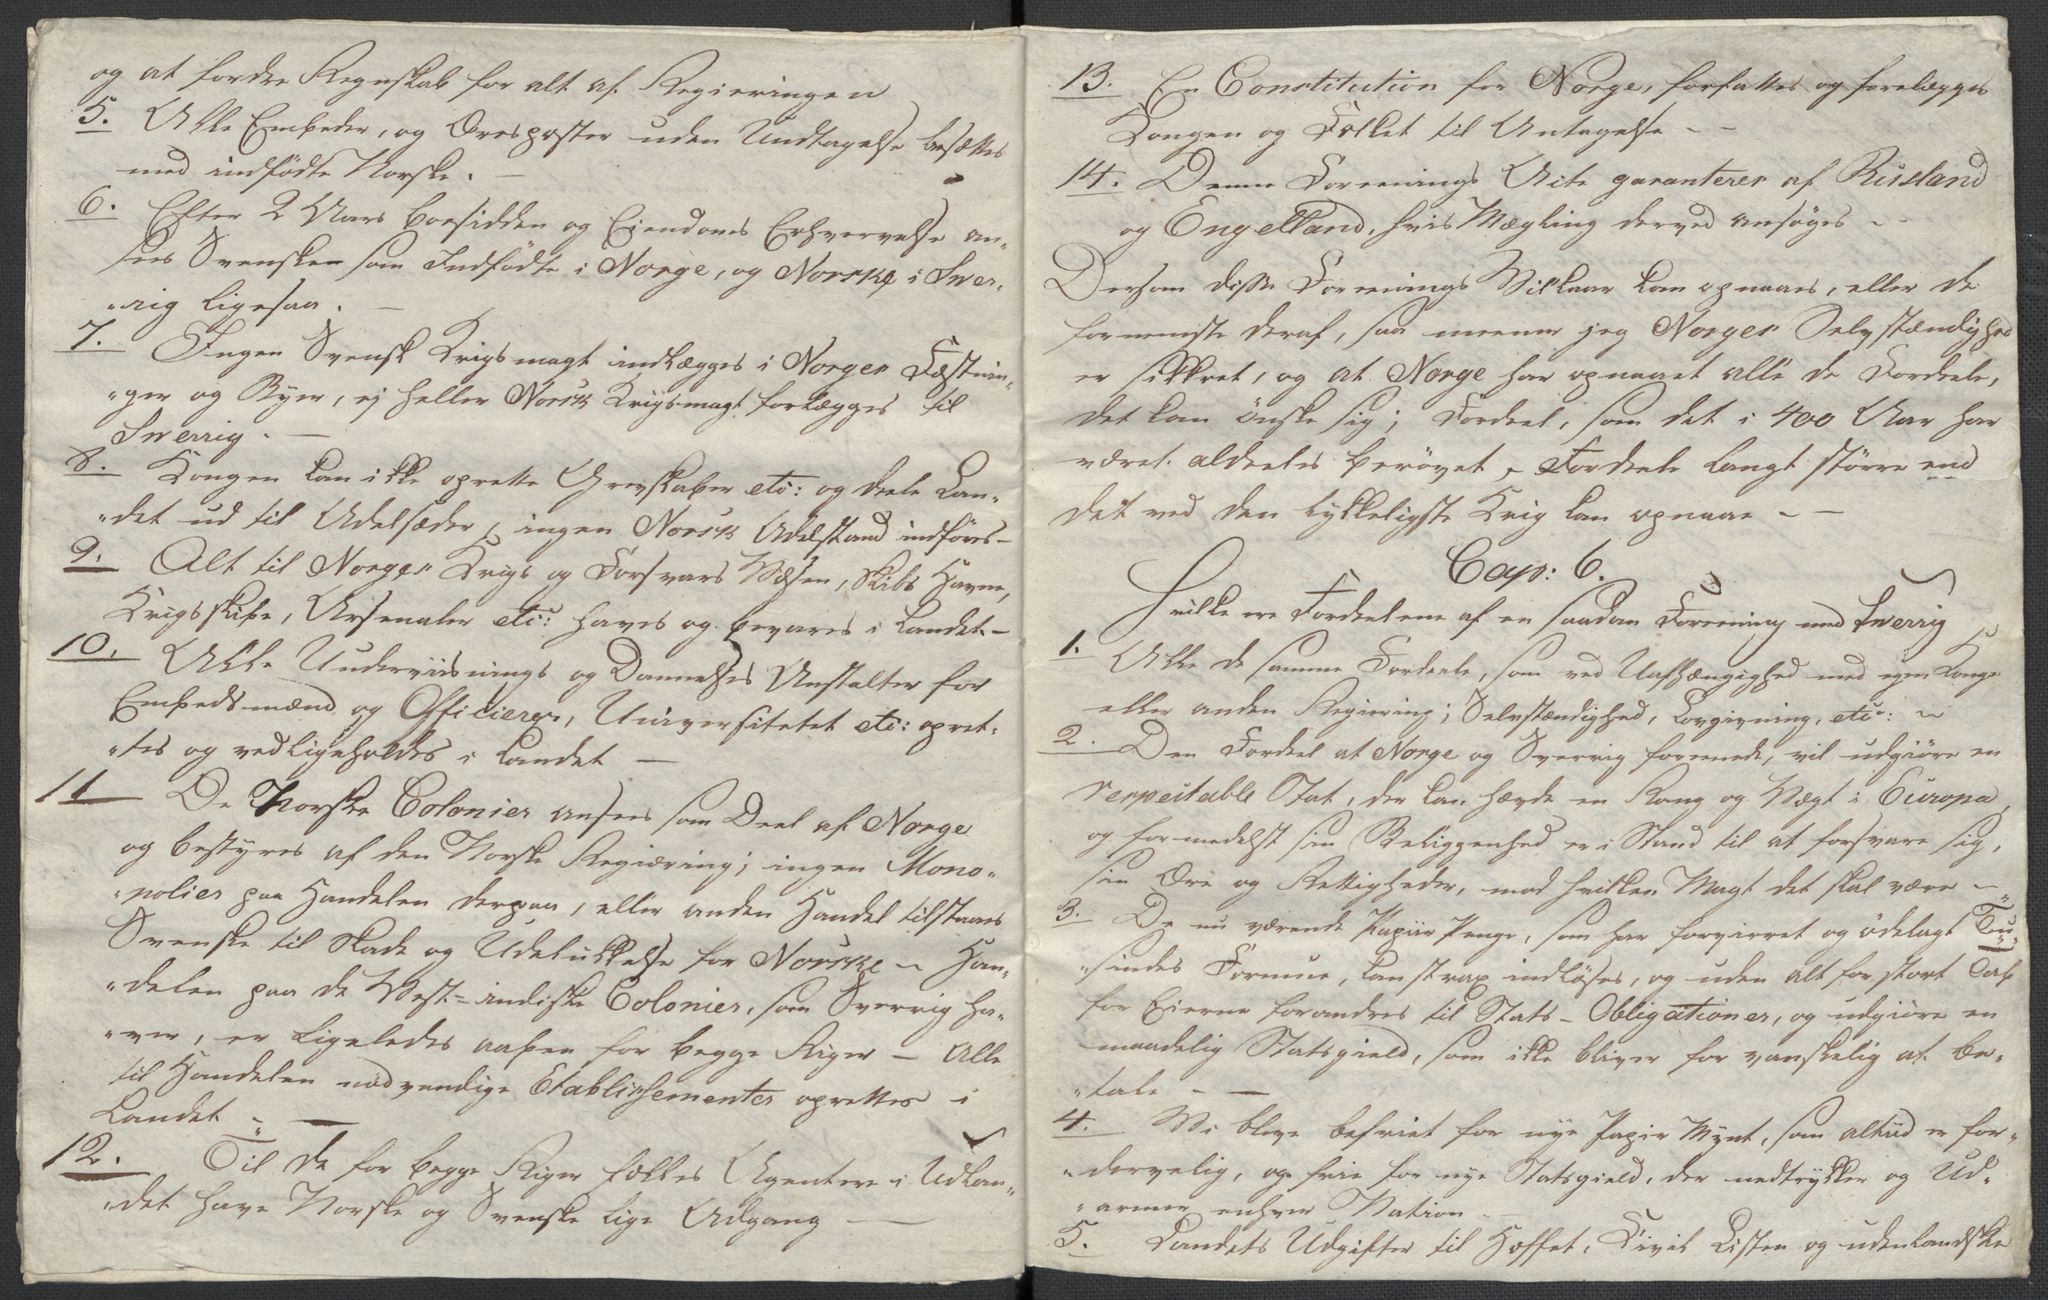 og at fordre Regnskab for alt af Regieringen
5. Alle Embeder, og Æresposter uden Undtagelse besættes
med indfödte Norske. —
6. Efter 2 Aars Boesidden og Eiendoms Erhvervelse an„
sees Svenske som Indfödte i Norge, og Norske i Sver„
„rig ligesaa. —
7. Ingen Svensk Krigsmagt indlægges i Norges Fæstnin„
„ger og Byer, ej heller Norsk Krigsmagt forlægges til
Sverrig. —
8. Kongen kan ikke oprette Grevskaber etc: og deele Lan„
„det ud til Adelsæder, ingen Norsk Adelstand indföres —
9. Alt til Norges Krigs og Forsvars Væsen, Skibs Havne,
Krigsskibe, Arsenaler etc: haves og bevares i Landet —
10. Alle Underviisnings og Dannelses Anstalter for
Embedsmænd og Officierer, Universitetet etc: opret„
„tes og vedligeholdes i Landet —
11 De Norske Colonier ansees som Deel af Norge
og bestyres af den Norske Regiæring; ingen Mono„
„polier paa Handelen derpaa, eller anden Handel tilstaaes
Svenske til Skade og Udelukkelse for Norske — Han„
„delen paa de Vest-indiske Colonier, som Sverrig ha„
„ver, er ligeledes aaben for begge Riger — Alle
til Handelen nødvendige Etablissementer oprettes i
Landet —
12. Til de for begge Riger fælles Agentere i Udlan„
„det have Norske og Svenske lige Adgang —
13. En Constitution for Norge, forfattes og forelægges
Kongen og Folket til Antagelse — —
14. Denne Foreenings Acte garanteres af Rusland
og Engelland, hvis Mægling derved ansöges —
Dersom disse Foreenings Vilkaar kan opnaaes, eller de
fornemste deraf, saa meener jeg Norges Selvstændighed
er sikkret, og at Norge har opnaaet alle de Fordeele,
det kan önske sig; Fordeel, som det i 400 Aar har
været aldeeles berövet, Fordeele langt större end
det ved den lykkeligste Krig kan opnaae — —
Cap: 6.
Hvilke ere Fordeelene af en saadan Foreening med Sverrig
1. Alle de samme Fordeele, som ved Uafhængighed med egen Konge
eller anden Regiering; Selvstændighed, Lovgivning, etc: —
2. Den Fordeel at Norge og Sverrig foreenede, vil udgiöre en
respectable Stat, der kan hævde en Rang og Vægt i Europa,
og formedelst sin Beliggenhed er i Stand til at forsvare sig,
sin Ære og Rettigheder, mod hvilken Magt det skal være —
3. De nu værende Papiir Penge, som har forvirret og ödelagt Tu„
„sindes Formue, kan strax indlöses, og uden alt for stort Tab
for Eierne forandres til Stats-Obligationer, og udgiöre en
maadelig Statsgield, som ikke bliver for vanskelig at be„
„tale — —
4. Vi blive befriet for nye Papir Mynt, som altiid er for„
„dervelig, og frie for nye Statsgield, der nedtrykker og Ud„
„armer enhver Nation —
5. Landets Udgifter til Hoffet, Civil Listen og udenlandske